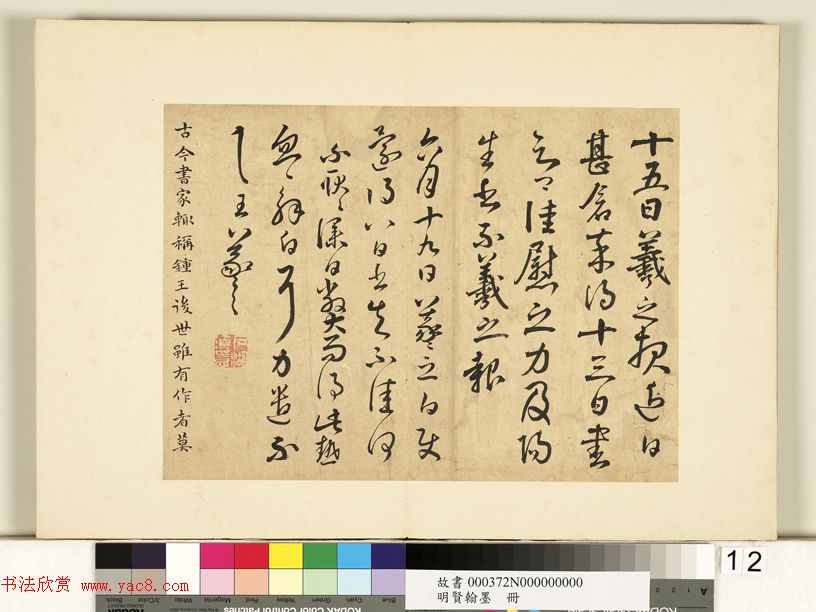 十五日羲之頓近日
甚念卒得十三日書
知佳慰之力及陽
生書不羲之報
六月十九日羲之白使
還得八日書知不佳何
不耿耿僕日弊而得此熱
忽忽解白耳力遣不
一一王羲之
古今書家輒稱鍾王後世雖有作者莫
12
Blue Cyan Green Yellow Red Magenta White 3/Color Black
KODAK Color Control Patches
A 1 2 3
故書 000372N000000000
明賢翰墨 冊
书法欣赏 www.yac8.com